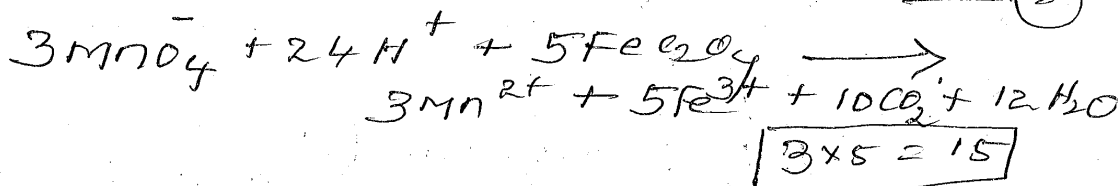 2
3MnO₄⁻ + 24H⁺ + 5FeC₂O₄ ⟶
3Mn²⁺ + 5Fe³⁺ + 10CO₂ + 12H₂O
3×5 = 15